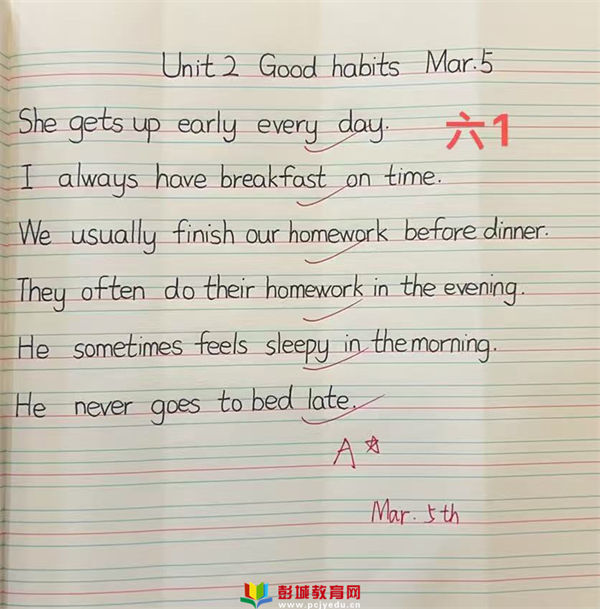 Unit 2 Good habits Mar.5
She gets up early every day.
六1
I always have breakfast on time.
We usually finish our homework before dinner.
They often do their homework in the evening.
He sometimes feels sleepy in the morning.
He never goes to bed late.
A
Mar. 5th
彭城教育网
www.pcjyedu.cn